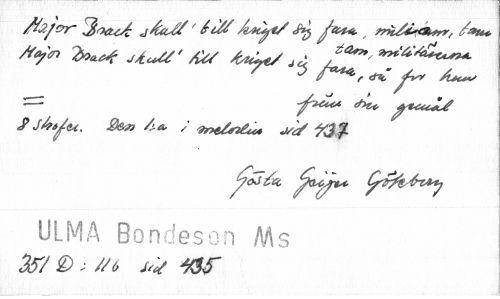 Major Brack skull' till kriget sig fara, militam, tam
Major Brack skull' till kriget sig fara, så for han
tam, militämma
från sin gemål
=
8 strofer. Den 1:a i melodin sid 437
Gösta Geijer Göteborg
ULMA Bondeson Ms
351 D : 116 sid 435